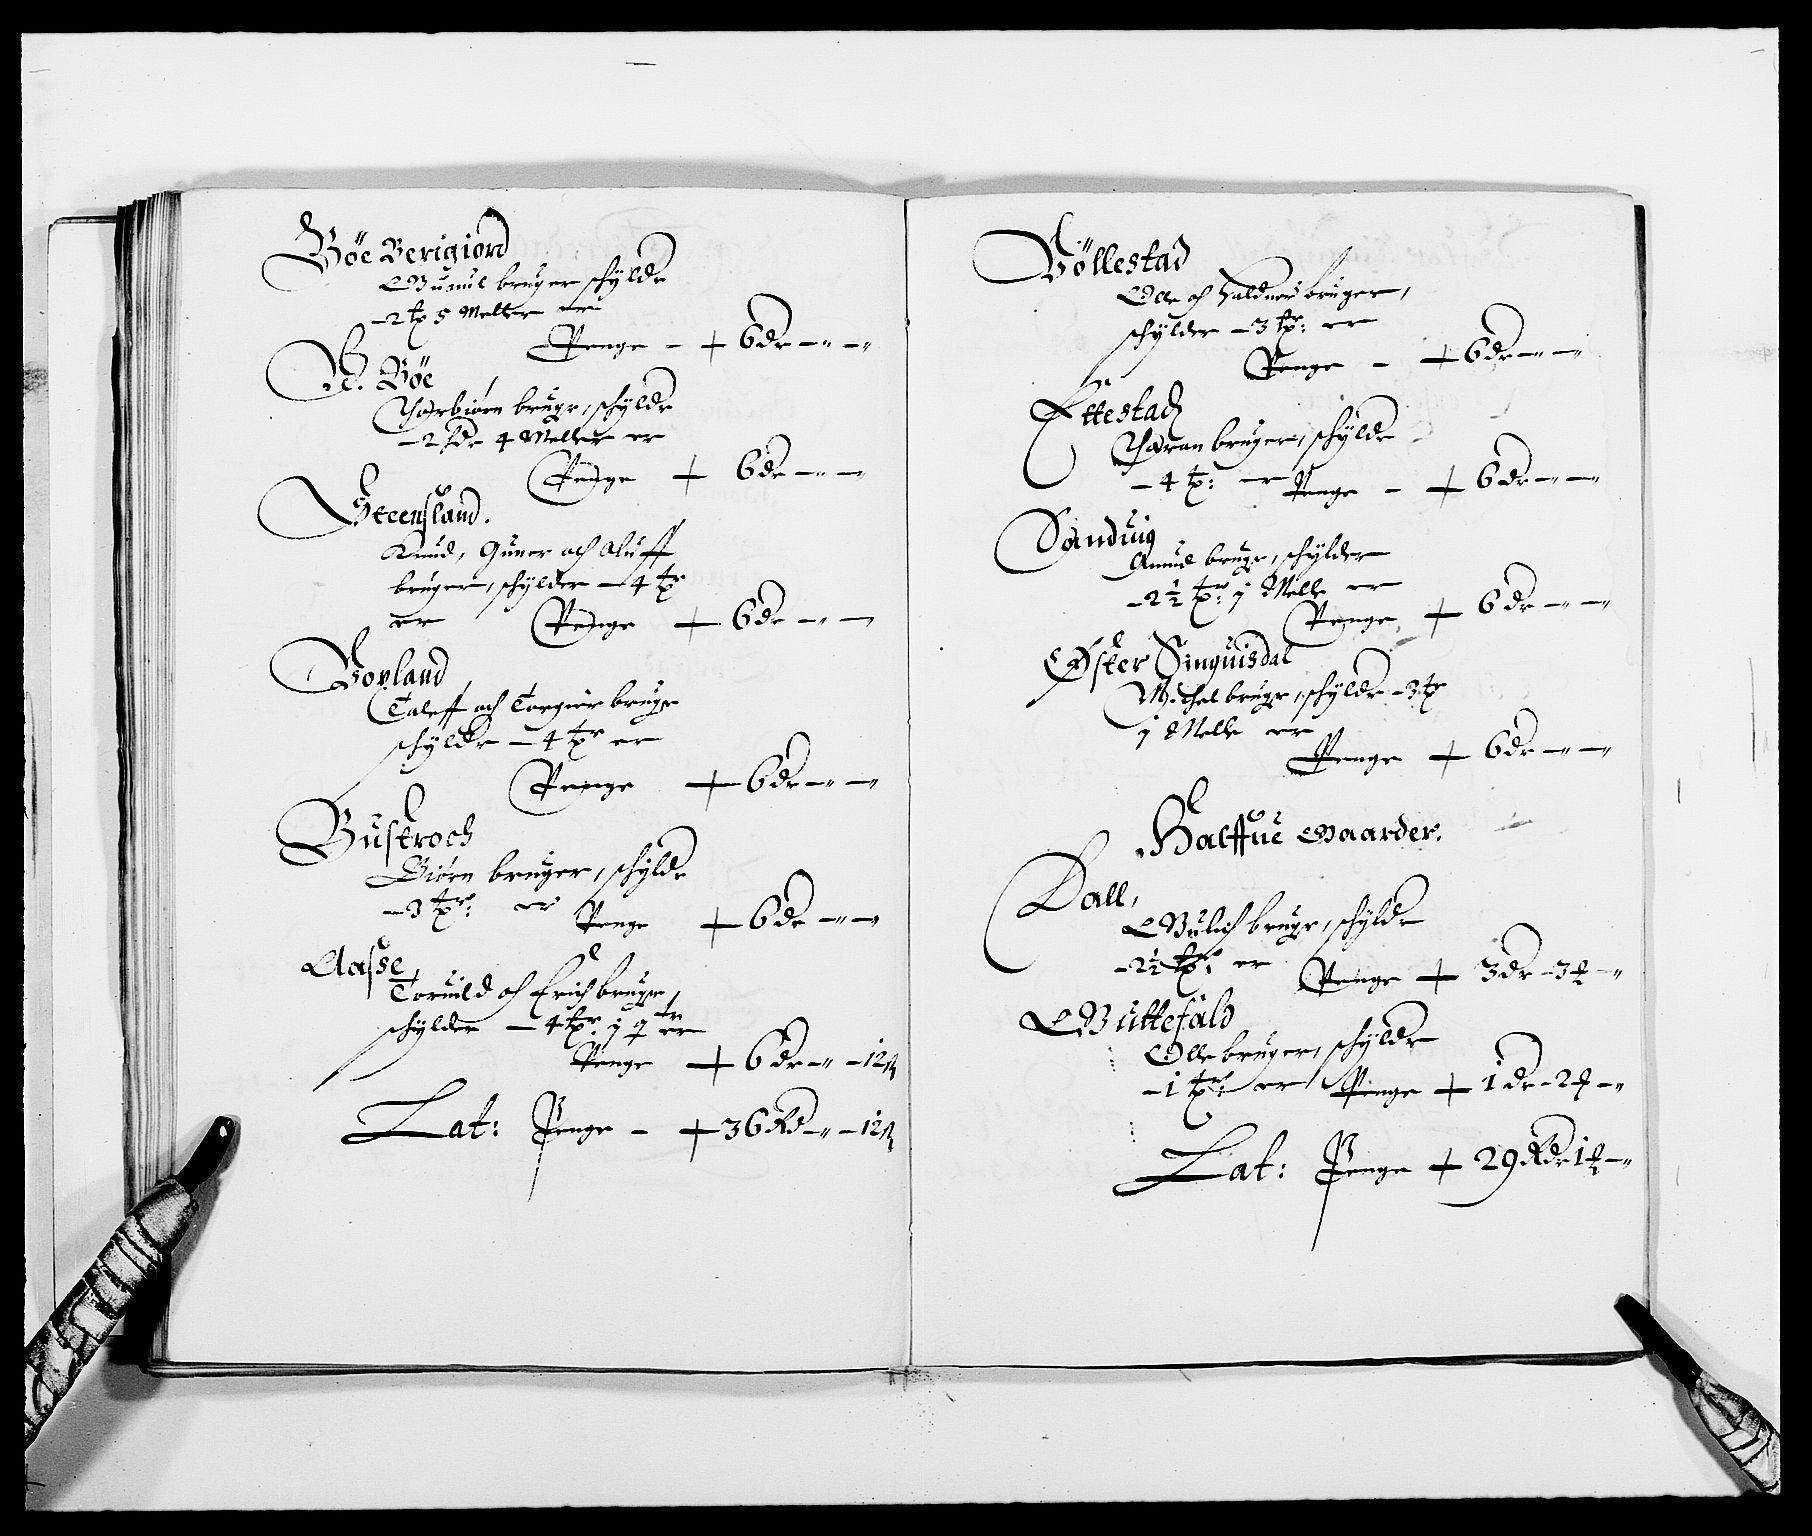 Böe Berigiord
Gunul bruger schylde
– 2 tp 5 Meller er
Penge – + 6 dr – " – "
N. Böe
Thorbiörn bruger, schylde
– 2 hdr 4 Meller er
Penge + 6 dr – " –
Steensland.
Knud, Guner och Aluff
bruger, schylder – 4 tpr
er Penge + 6 dr – " –
Boyland
Taleff och Torgier bruger
schylder – 4 tpr er
Penge + 6 dr – " – "
Bustroch
Biörn bruger, schylde
– 3 tpr: er Penge + 6 dr – " – "
Aasse
Toruild och Erich bruger,
schylder – 4 tpr: j qr er
Penge + 6 dr – " – 12 ß
Lat: Penge – + 36 Rd – " – 12 ß
Böllestad
Olle och Haldvor bruger,
schylder – 3 tpr: er
Penge – + 6 dr – " – "
Ettestad
Thoran bruger, schylde
– 4 tp: er Penge – + 6 dr – " – "
Sanduig
Amund bruger, schylder
– 2 ½ tpr: j Melle er
Penge + 6 dr – " – "
Øster Singuisdal
Michel bruger, schylder – 3 tpr
j Melle er
Penge + 6 dr – " – "
Halffue Gaarder.
Dall,
Gulich bruger, schylde
– 2 ½ tpr: er Penge + 3 dr – 3 ƶ – "
Guttefald
Olle bruger, schylde
– 1 tpr: er Penge + 1 dr – 2 ƶ – "
Lat: Penge + 29 Rdr 1 ƶ – "